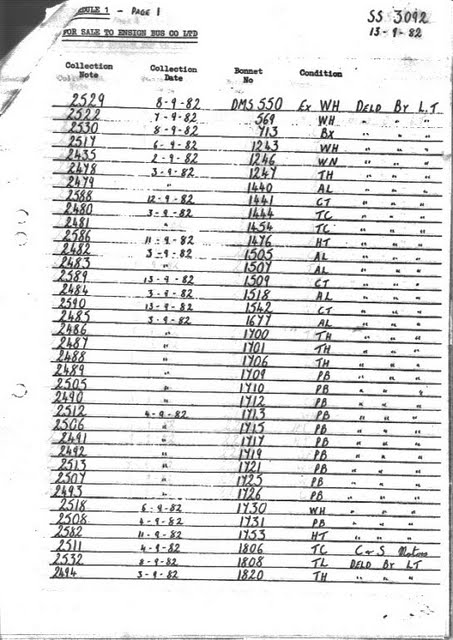 SCHEDULE 1 - PAGE 1 SS 3092
FOR SALE TO ENSIGN BUS CO LTD 13-9-82
Collection Note Collection Date Bonnet No Condition
2529 8-9-82 DMS 550 Ex WH DELD BY L.T
2522 7-9-82 569 WH " " "
2530 8-9-82 713 BX " " "
2517 6-9-82 1243 WH " " "
2435 2-9-82 1246 WN " " "
2478 3-9-82 1247 TH " " "
2479 " 1440 AL " " "
2588 12-9-82 1441 CT " " "
2480 3-9-82 1444 TC " " "
2481 " 1454 TC " " "
2586 11-9-82 1476 HT " " "
2482 3-9-82 1505 AL " " "
2483 " 1507 AL " " "
2589 13-9-82 1509 CT " " "
2484 3-9-82 1518 AL " " "
2590 13-9-82 1542 CT " " "
2485 3-9-82 1677 AL " " "
2486 " 1700 TH " " "
2487 " 1701 TH " " "
2488 " 1706 TH " " "
2489 " 1709 PB " " "
2505 " 1710 PB " " "
2490 " 1712 PB " " "
2512 4-9-82 1713 PB " " "
2506 " 1715 PB " " "
2491 " 1717 PB " " "
2492 " 1719 PB " " "
2513 " 1721 PB " " "
2507 " 1725 PB " " "
2493 " 1726 PB " " "
2518 6-9-82 1730 WH " " "
2508 4-9-82 1731 PB " " "
2582 11-9-82 1753 HT " " "
2511 4-9-82 1806 TC C & S Motors
2532 8-9-82 1808 TL DELD BY LT
2494 3-9-82 1820 TH " " "